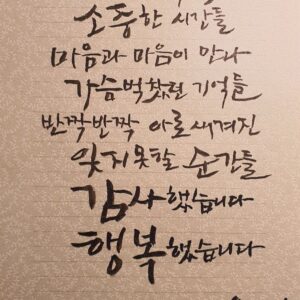 소중한 시간들
마음과 마음이 만나
가슴벅찼던 기억들
반짝반짝 아로새겨진
잊지못할 순간들
감사했습니다
행복했습니다